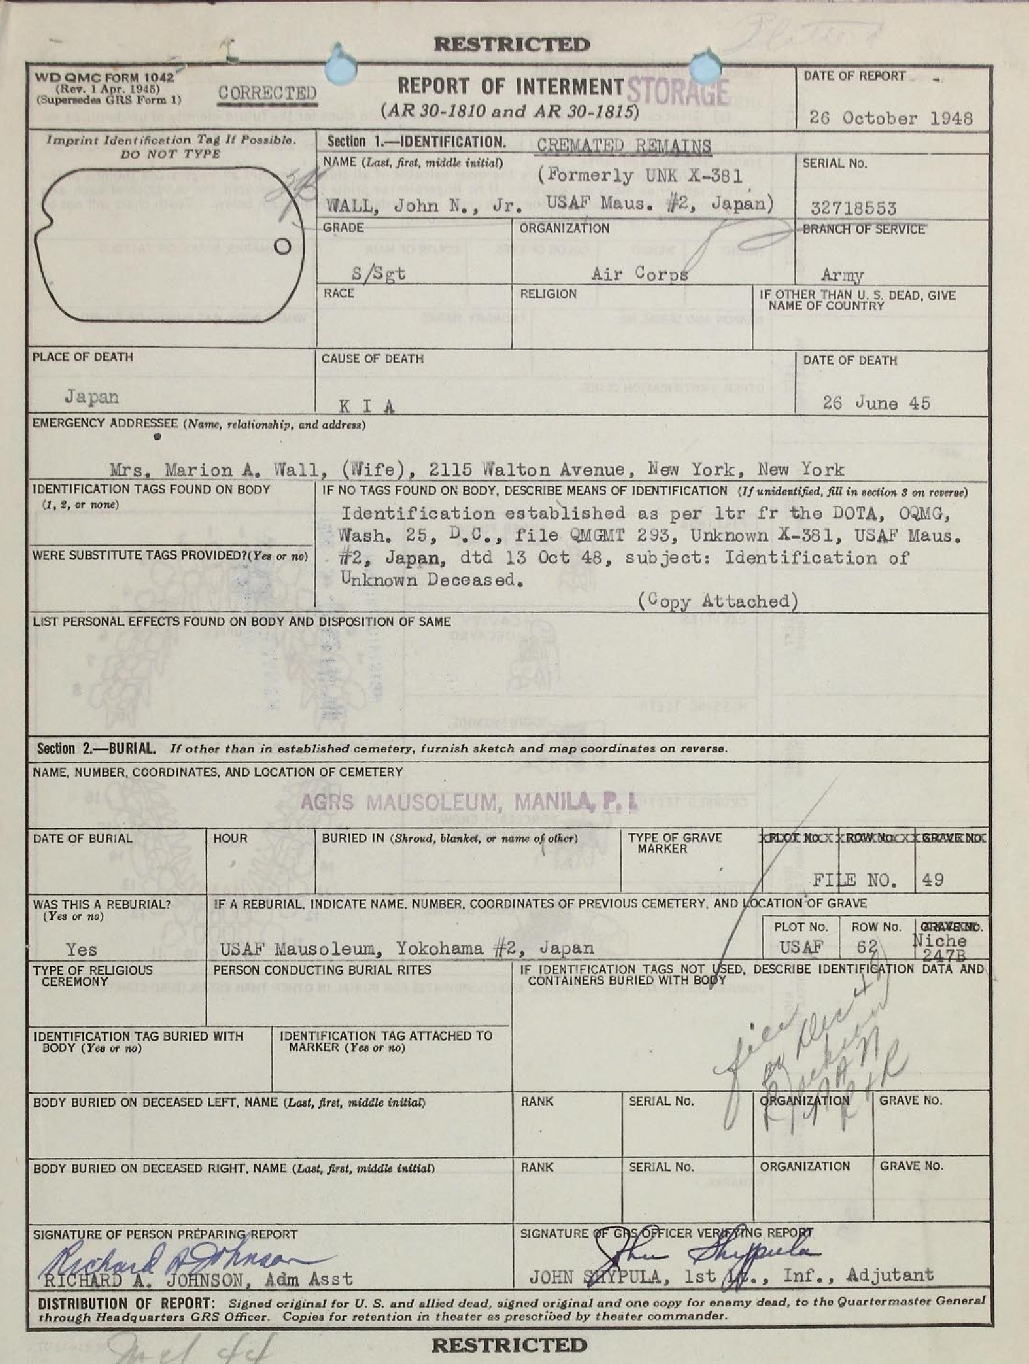 RESTRICTED
WD QMC FORM 1042
(Rev. 1 Apr. 1945)
(Supersedes GRS Form 1)
CORRECTED
REPORT OF INTERMENT STORAGE
(AR 30-1810 and AR 30-1815)
DATE OF REPORT
26 October 1948
Imprint Identification Tag If Possible.
DO NOT TYPE
Section 1.—IDENTIFICATION. CREMATED REMAINS
NAME (Last, first, middle initial)
(Formerly UNK X-381
WALL, John N., Jr. USAF Maus. #2, Japan)
SERIAL No.
32718553
GRADE
S/Sgt
ORGANIZATION
Air Corps
BRANCH OF SERVICE
Army
RACE
RELIGION
IF OTHER THAN U. S. DEAD, GIVE
NAME OF COUNTRY
PLACE OF DEATH
Japan
CAUSE OF DEATH
K I A
DATE OF DEATH
26 June 45
EMERGENCY ADDRESSEE (Name, relationship, and address)
Mrs. Marion A. Wall, (Wife), 2115 Walton Avenue, New York, New York
IDENTIFICATION TAGS FOUND ON BODY
(1, 2, or none)
WERE SUBSTITUTE TAGS PROVIDED?(Yes or no)
IF NO TAGS FOUND ON BODY, DESCRIBE MEANS OF IDENTIFICATION (If unidentified, fill in section 3 on reverse)
Identification established as per ltr fr the DOTA, OQMG,
Wash. 25, D.C., file QMGMT 293, Unknown X-381, USAF Maus.
#2, Japan, dtd 13 Oct 48, subject: Identification of
Unknown Deceased.
(Copy Attached)
LIST PERSONAL EFFECTS FOUND ON BODY AND DISPOSITION OF SAME
Section 2.—BURIAL. If other than in established cemetery, furnish sketch and map coordinates on reverse.
NAME, NUMBER, COORDINATES, AND LOCATION OF CEMETERY
AGRS MAUSOLEUM, MANILA, P. I.
DATE OF BURIAL
HOUR
BURIED IN (Shroud, blanket, or name of other)
TYPE OF GRAVE
MARKER
PLOT No. ROW No. GRAVE NO.
FILE NO. 49
WAS THIS A REBURIAL?
(Yes or no)
Yes
IF A REBURIAL, INDICATE NAME, NUMBER, COORDINATES OF PREVIOUS CEMETERY, AND LOCATION OF GRAVE
USAF Mausoleum, Yokohama #2, Japan
PLOT No.
USAF
ROW No.
62
GRAVE No.
Niche
247B
TYPE OF RELIGIOUS
CEREMONY
PERSON CONDUCTING BURIAL RITES
IF IDENTIFICATION TAGS NOT USED, DESCRIBE IDENTIFICATION DATA AND
CONTAINERS BURIED WITH BODY
IDENTIFICATION TAG BURIED WITH
BODY (Yes or no)
IDENTIFICATION TAG ATTACHED TO
MARKER (Yes or no)
BODY BURIED ON DECEASED LEFT, NAME (Last, first, middle initial)
RANK
SERIAL No.
ORGANIZATION
GRAVE NO.
BODY BURIED ON DECEASED RIGHT, NAME (Last, first, middle initial)
RANK
SERIAL No.
ORGANIZATION
GRAVE No.
SIGNATURE OF PERSON PREPARING REPORT
Richard A Johnson
RICHARD A. JOHNSON, Adm Asst
SIGNATURE OF GRS OFFICER VERIFYING REPORT
John Shypula
JOHN SHYPULA, 1st Lt., Inf., Adjutant
DISTRIBUTION OF REPORT: Signed original for U. S. and allied dead, signed original and one copy for enemy dead, to the Quartermaster General
through Headquarters GRS Officer. Copies for retention in theater as prescribed by theater commander.
RESTRICTED